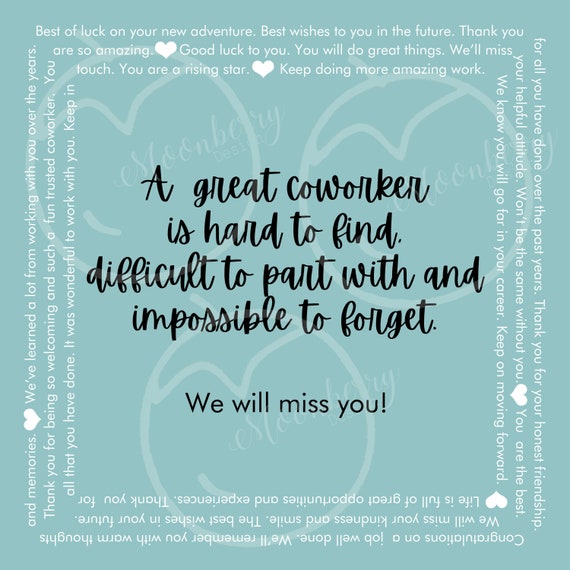 Best of luck on your new adventure. Best wishes to you in the future. Thank you
are so amazing. Good luck to you. You will do great things. We'll miss
touch. You are a rising star. Keep doing more amazing work.
for all you have done over the past years. Thank you for your honest friendship.
your helpful attitude. Won't be the same without you. You are the best.
We know you will go far in your career. Keep on moving forward.
Life is full of great opportunities and experiences. Thank you for
We will miss your kindness and smile. The best wishes in your future.
Congratulations on a job well done. We'll remember you with warm thoughts
and memories. We've learned a lot from working with you over the years.
Thank you for being so welcoming and such a fun trusted coworker. You
all that you have done. It was wonderful to work with you. Keep in
A great coworker
is hard to find,
difficult to part with and
impossible to forget.
We will miss you!
Moonberry
Designs
Moonberry
Moonberry